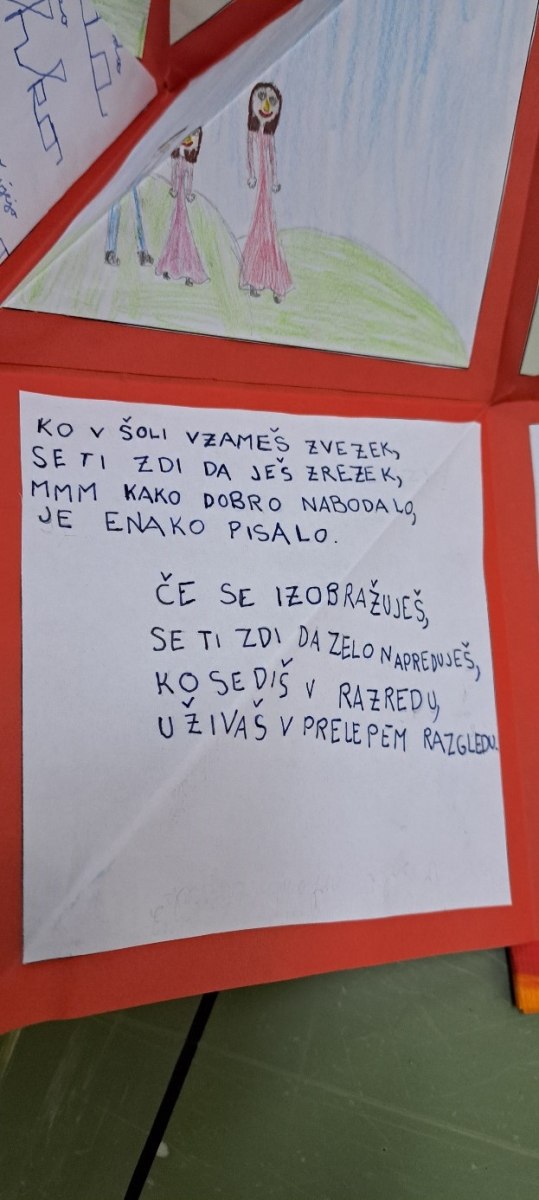 KO V ŠOLI VZAMEŠ ZVEZEK,
SE TI ZDI DA JEŠ ZREZEK,
MMM KAKO DOBRO NABODALO,
JE ENAKO PISALO.
ČE SE IZOBRAŽUJEŠ,
SE TI ZDI DA ZELO NAPREDUJEŠ,
KO SEDIŠ V RAZREDU,
UŽIVAŠ V PRELEPEM RAZGLEDU.